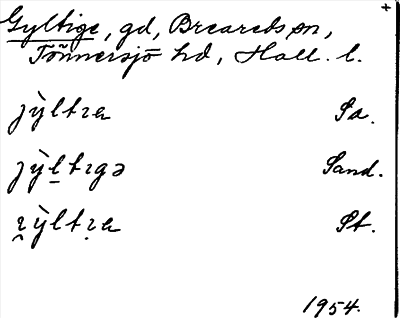 Gyltige, gd, Breareds sn,
Tönnersjö hd, Hall. l.
jỳltɪa Sa.
jỳl̠tɪgə Sand.
ɪ̯ỳltɪ̣a St.
1954.